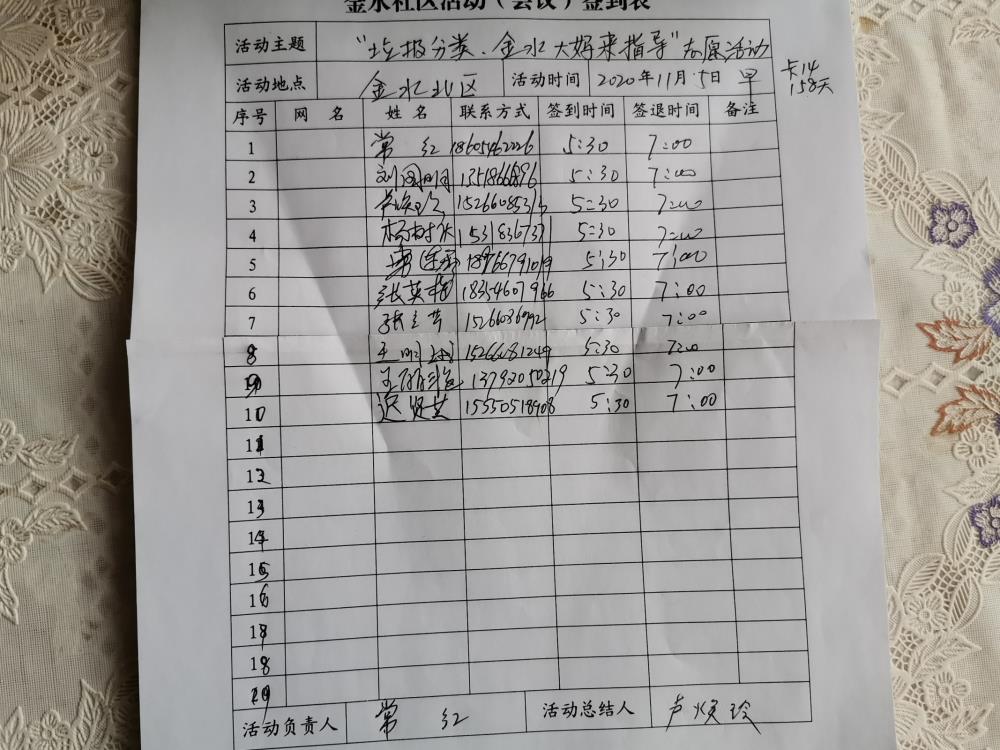 金水社区活动（会议）签到表
活动主题 "垃圾分类、金水大好来指导"志愿活动
卡14
158天
活动地点 金水北区 活动时间 2020年11月5日 早
序号 网 名 姓 名 联系方式 签到时间 签退时间 备注
1 常 红 18605462226 5:30 7:00
2 5:30 7:00
3 15266085313 5:30 7:00
4 5:30 7:00
5 5:30 7:00
6 张英梅 18354607966 5:30 7:00
7 5:30 7:00
8 15266281249 5:30 7:00
9 13792050219 5:30 7:00
10 迟贤英 15550518908 5:30 7:00
11
12
13
14
15
16
17
18
19
活动负责人 常 红 活动总结人 卢焕玲